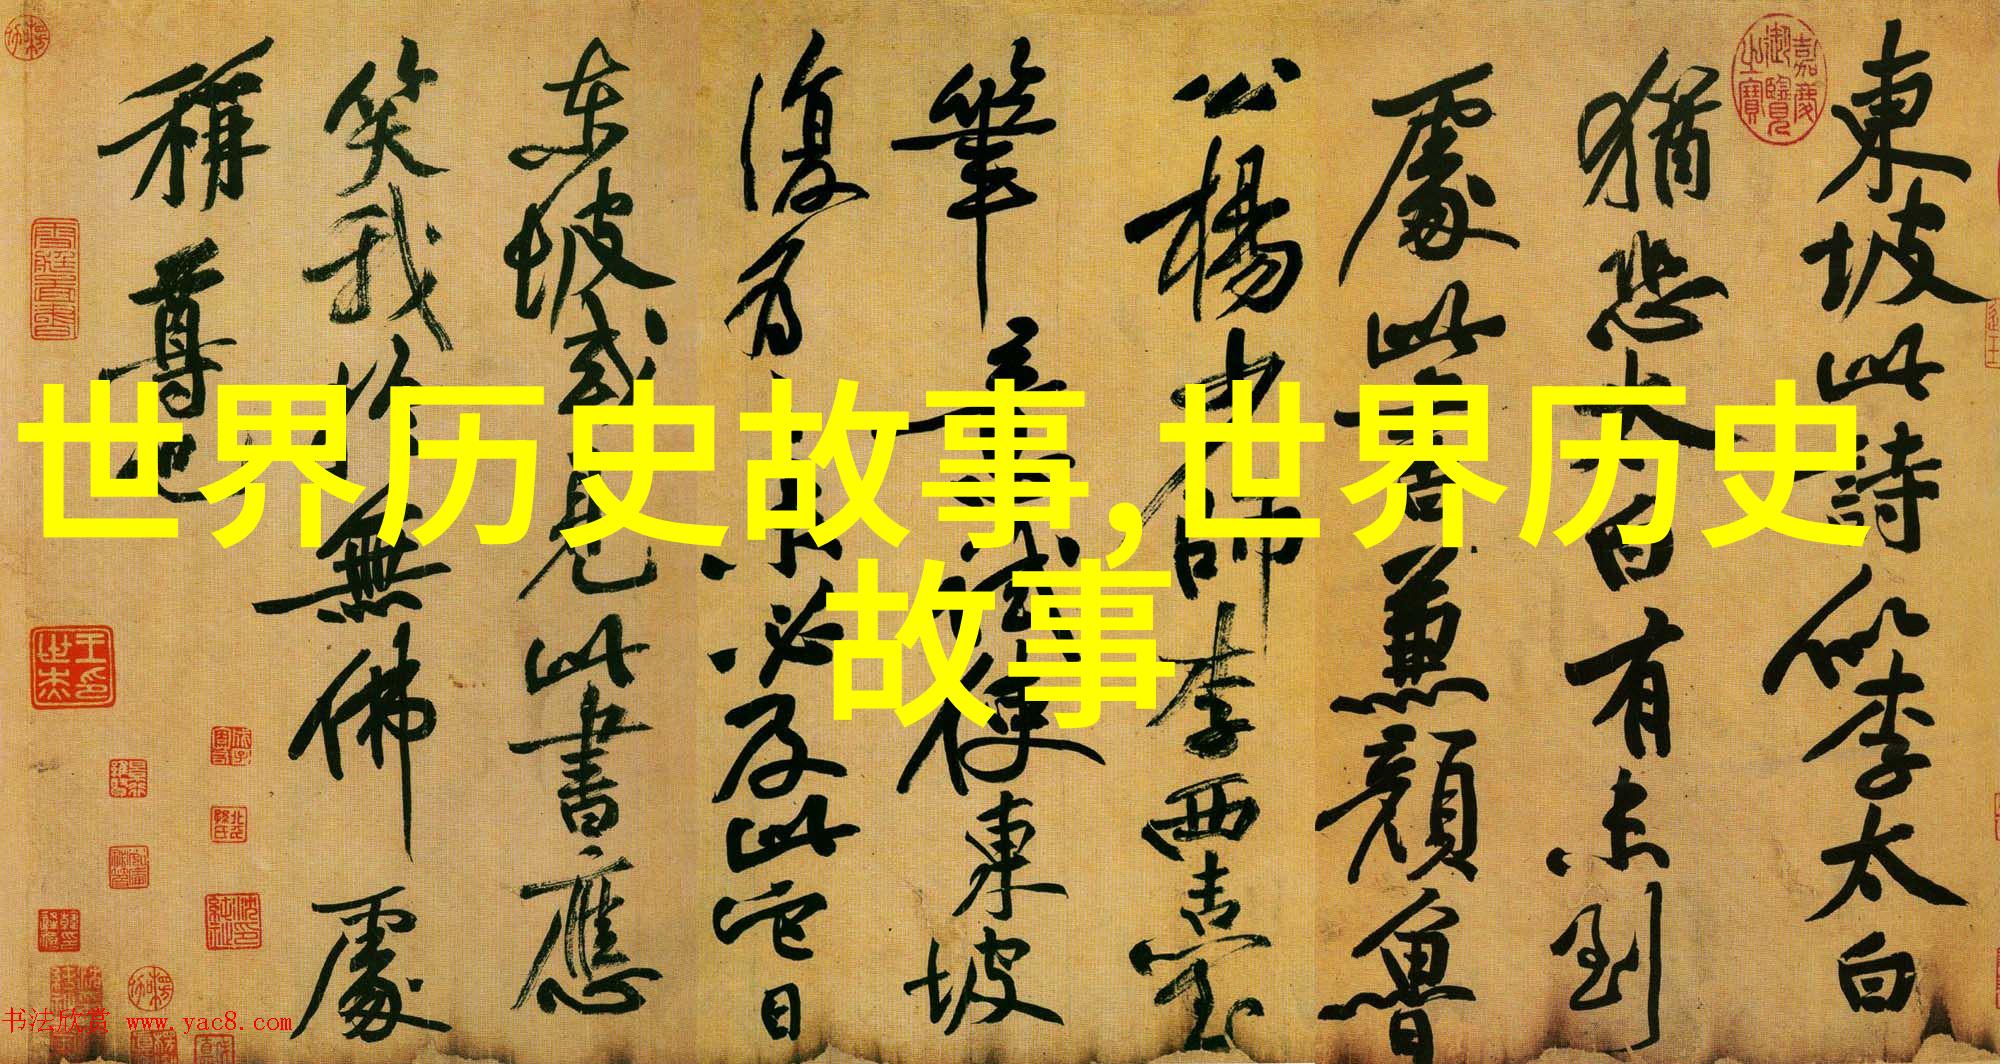 東坡此詩似李太白
猶恐太白有未到
處此書兼顏魯
公楊少師李西臺
筆意試使東坡
復為之未必及此它日
東坡或見此書應
笑我於無佛處
稱尊也
世界历史故事,世界历史
故事
嘉慶御覽之寶
书法欣赏 www.yac8.com